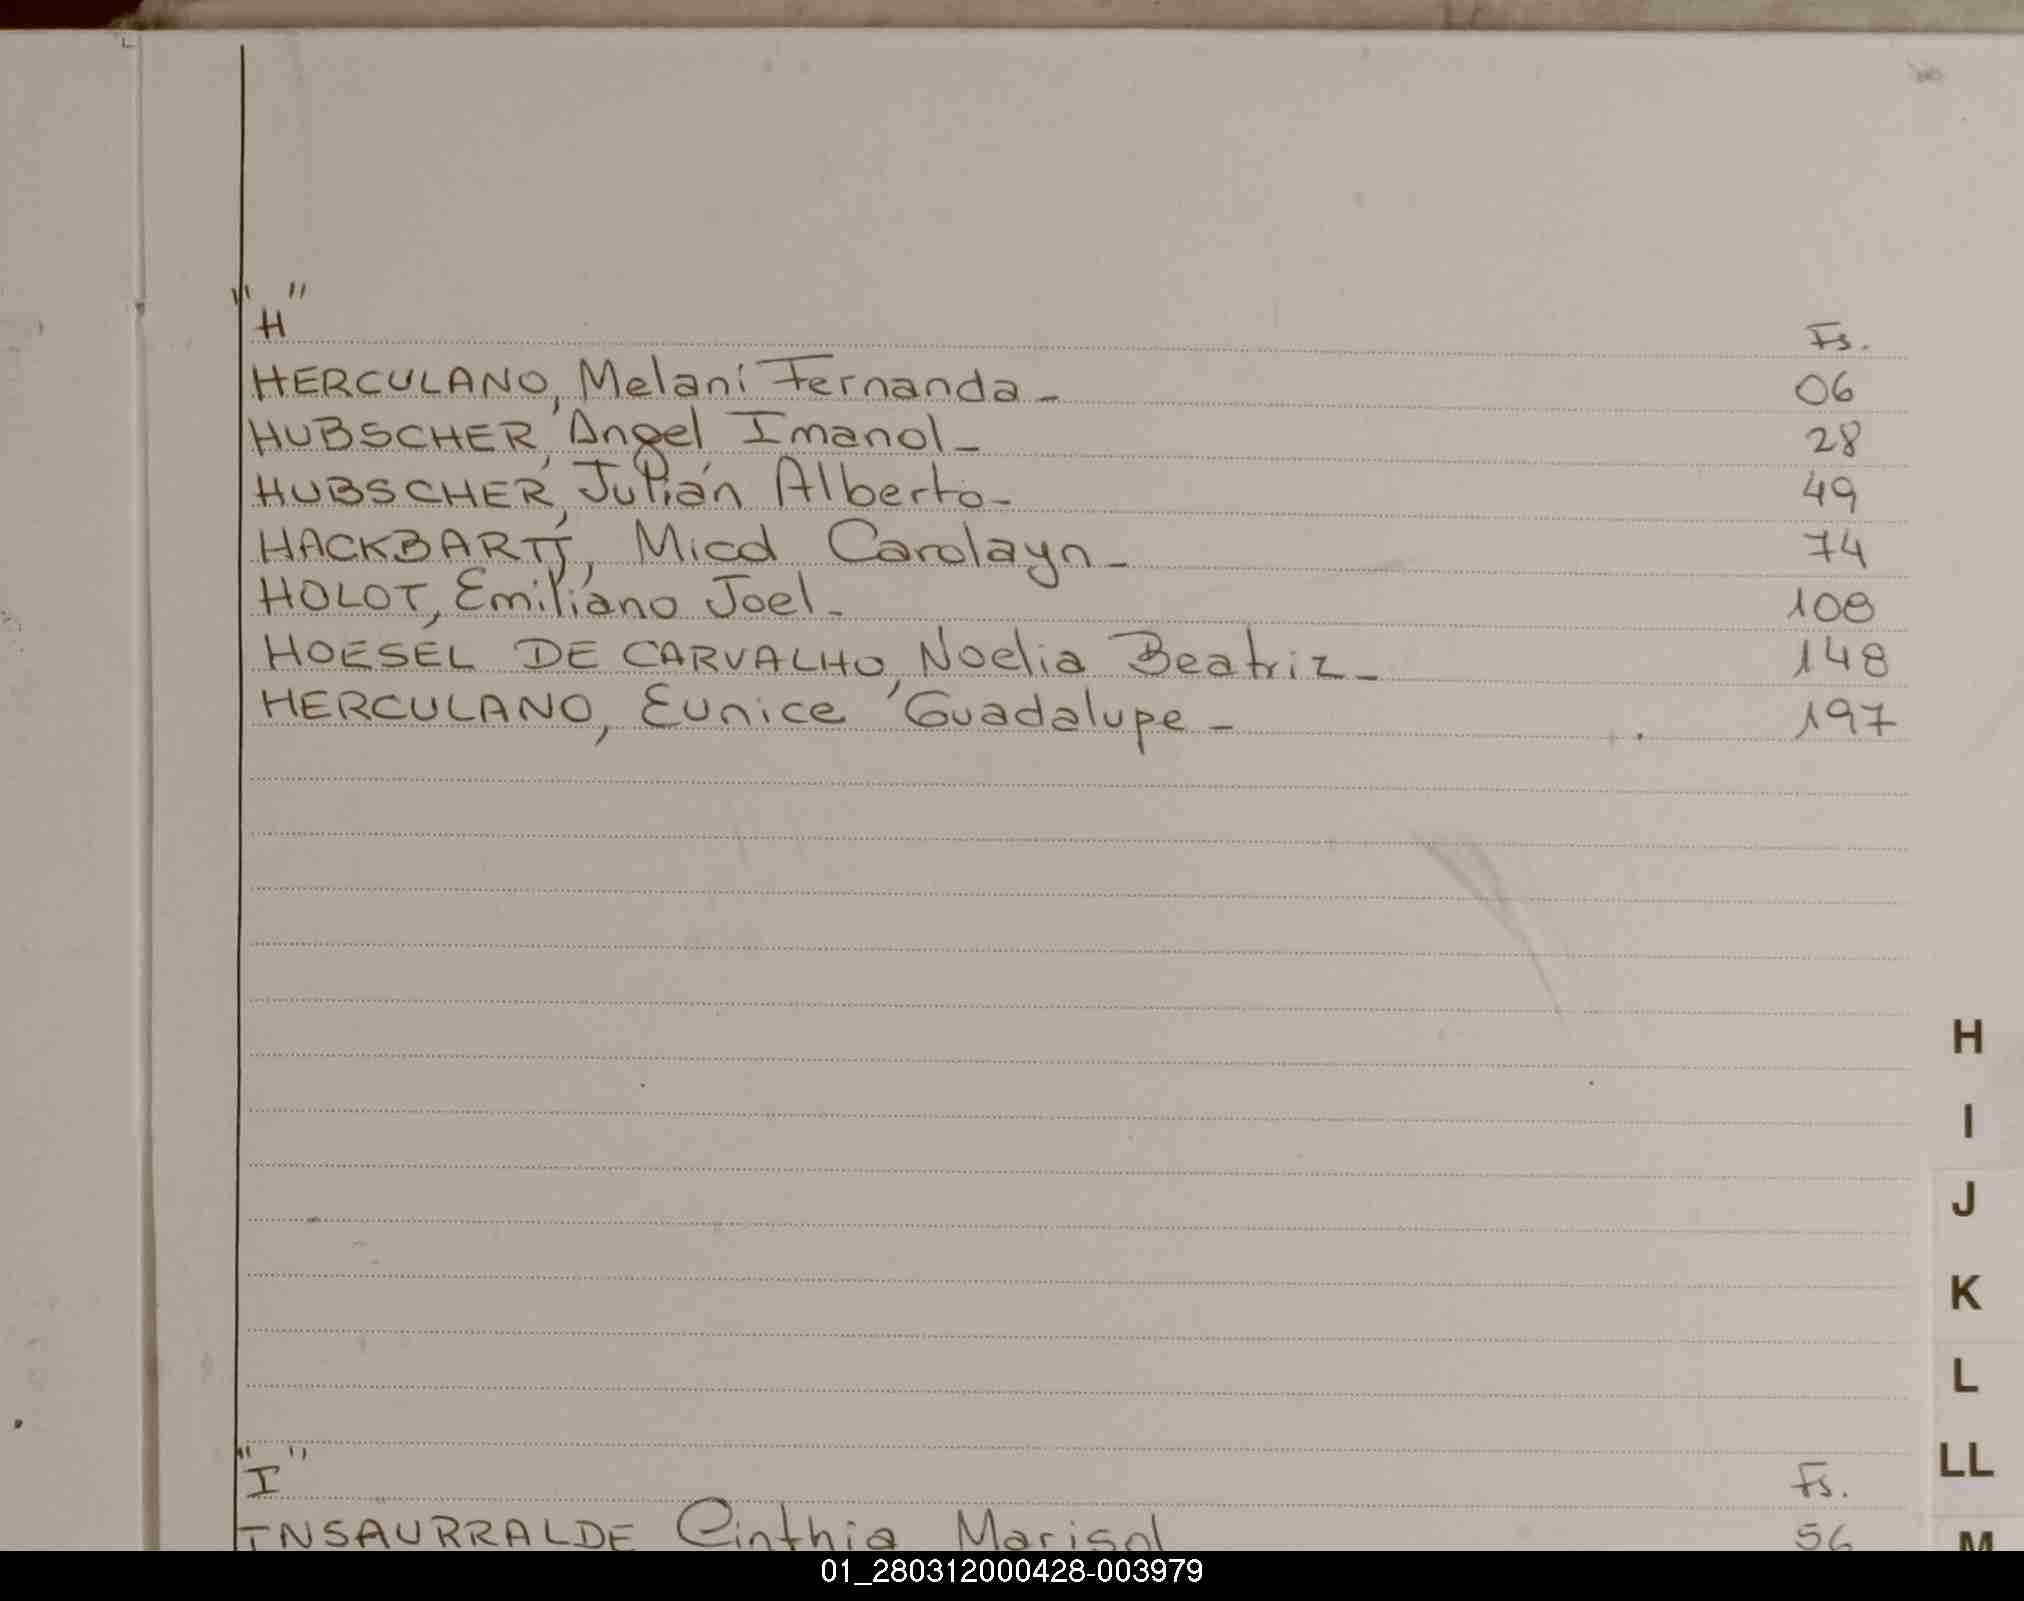 "H" Fs.
HERCULANO, Melani Fernanda - 06
HUBSCHER, Angel Imanol - 28
HUBSCHER, Julián Alberto - 49
Carolayn - 74
HOLOT, Emiliano Joel - 108
HOESEL DE CARVALHO, Noelia Beatriz - 148
HERCULANO, Eunice Guadalupe - 197
H
I
J
K
L
LL
"I" Fs.
INSAURRALDE Cinthia Marisol 56
M
01_280312000428-003979